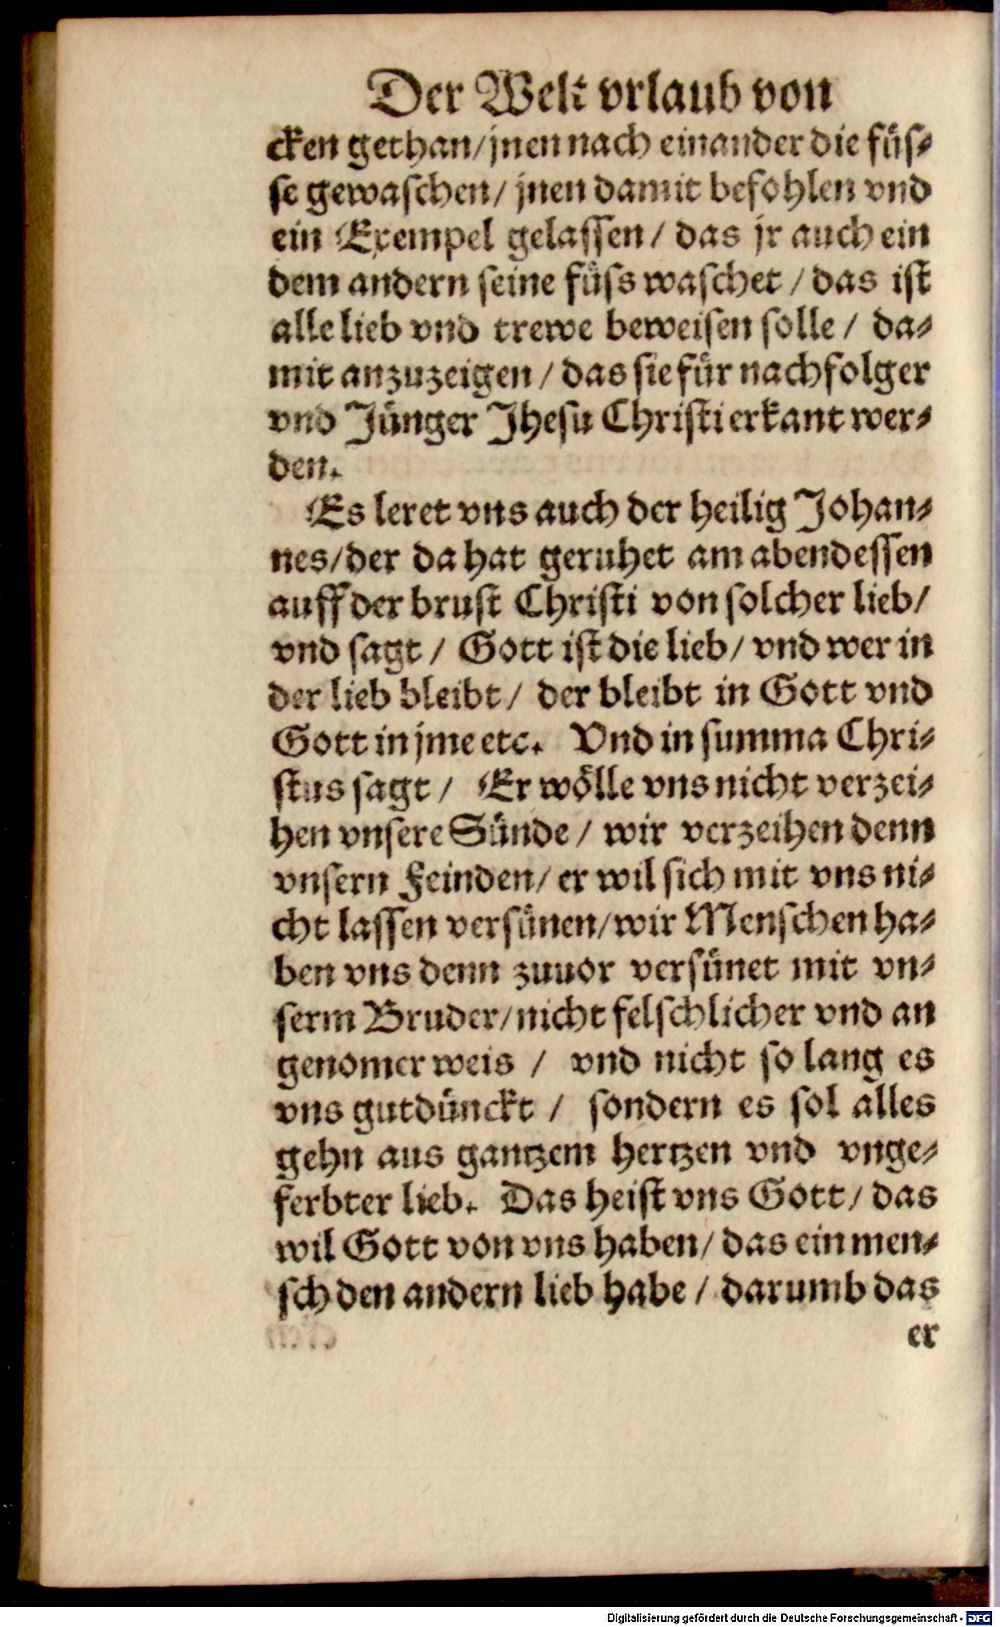 Der Welt vrlaub von
cken gethan/ jnen nach einander die füs⸗
se gewaschen/ jnen damit befohlen vnd
ein Exempel gelassen/ das jr auch ein
dem andern seine füss waschet/ das ist
alle lieb vnd trewe beweisen solle/ da⸗
mit anzuzeigen/ das sie für nachfolger
vnd Jünger Jhesu Christi erkant wer⸗
den.
Es leret vns auch der heilig Johan⸗
nes/ der da hat geruhet am abendessen
auff der brust Christi von solcher lieb/
vnd sagt/ Gott ist die lieb/ vnd wer in
der lieb bleibt/ der bleibt in Gott vnd
Gott in jme etc. Vnd in summa Chri⸗
stus sagt/ Er wölle vns nicht verzei⸗
hen vnsere Sünde/ wir verzeihen denn
vnsern Feinden/ er wil sich mit vns ni⸗
cht lassen versünen/ wir Menschen ha⸗
ben vns denn zuuor versünet mit vn⸗
serm Bruder/ nicht felschlicher vnd an
genomer weis/ vnd nicht so lang es
vns gutdünckt/ sondern es sol alles
gehn aus gantzem hertzen vnd vnge⸗
ferbter lieb. Das heist vns Gott/ das
wil Gott von vns haben/ das ein men⸗
sch den andern lieb habe/ darumb das
er
Digitalisierung gefördert durch die Deutsche Forschungsgemeinschaft - DFG